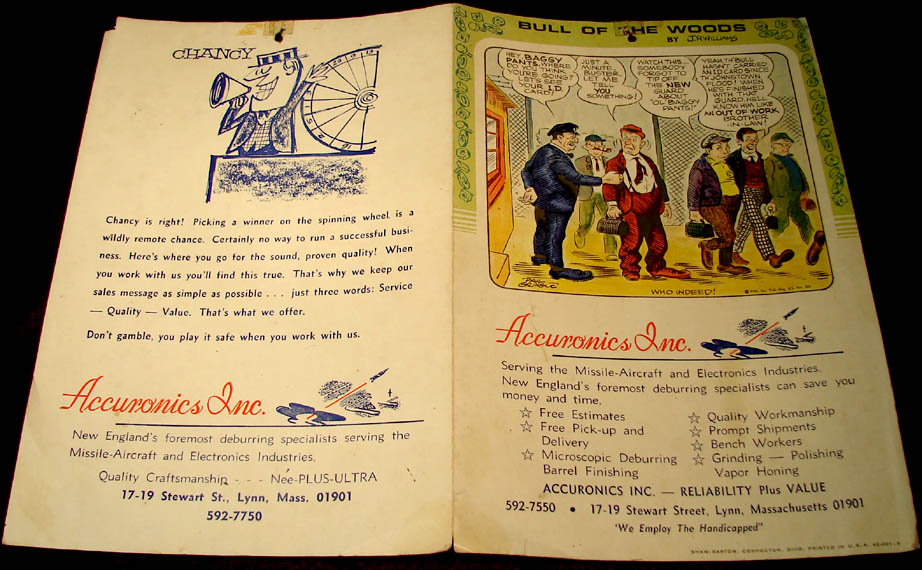 CHANCY
Chancy is right! Picking a winner on the spinning wheel is a
wildly remote chance. Certainly no way to run a successful busi-
ness. Here's where you go for the sound, proven quality! When
you work with us you'll find this true. That's why we keep our
sales message as simple as possible . . . just three words: Service
— Quality — Value. That's what we offer.
Don't gamble, you play it safe when you work with us.
Accuronics Inc.
New England's foremost deburring specialists serving the
Missile-Aircraft and Electronics Industries.
Quality Craftsmanship - - - Née-PLUS-ULTRA
17-19 Stewart St., Lynn, Mass. 01901
592-7750
BULL OF THE WOODS
BY J.R. WILLIAMS
HEY, BAGGY
PANTS, WHERE
DO YA THINK
YOU'RE GOING?
LET'S SEE
YOUR I.D.
CARD!
JUST A
MINUTE,
BUSTER.
LET ME
TELL
YOU
SOMETHING!
WATCH THIS...
SOMEBODY
FORGOT TO
TIP OFF
THE NEW
GUARD
ABOUT
'OL BAGGY
PANTS!
YEAH, TH' BULL
HASN'T CARRIED
AN I.D. CARD SINCE
TH' JOHNSTOWN
FLOOD! WHEN
HE'S FINISHED
WITH THAT
GUARD, HE'LL
KNOW HIM LIKE
AN OUT OF WORK
BROTHER
-IN-LAW!
WHO INDEED!
Accuronics Inc.
Serving the Missile-Aircraft and Electronics Industries.
New England's foremost deburring specialists can save you
money and time.
☆ Free Estimates
☆ Free Pick-up and
Delivery
☆ Microscopic Deburring
Barrel Finishing
☆ Quality Workmanship
☆ Prompt Shipments
☆ Bench Workers
☆ Grinding — Polishing
Vapor Honing
ACCURONICS INC. — RELIABILITY Plus VALUE
592-7550 • 17-19 Stewart Street, Lynn, Massachusetts 01901
"We Employ The Handicapped"
SHAW-BARTON, COSHOCTON, OHIO, PRINTED IN U.S.A.